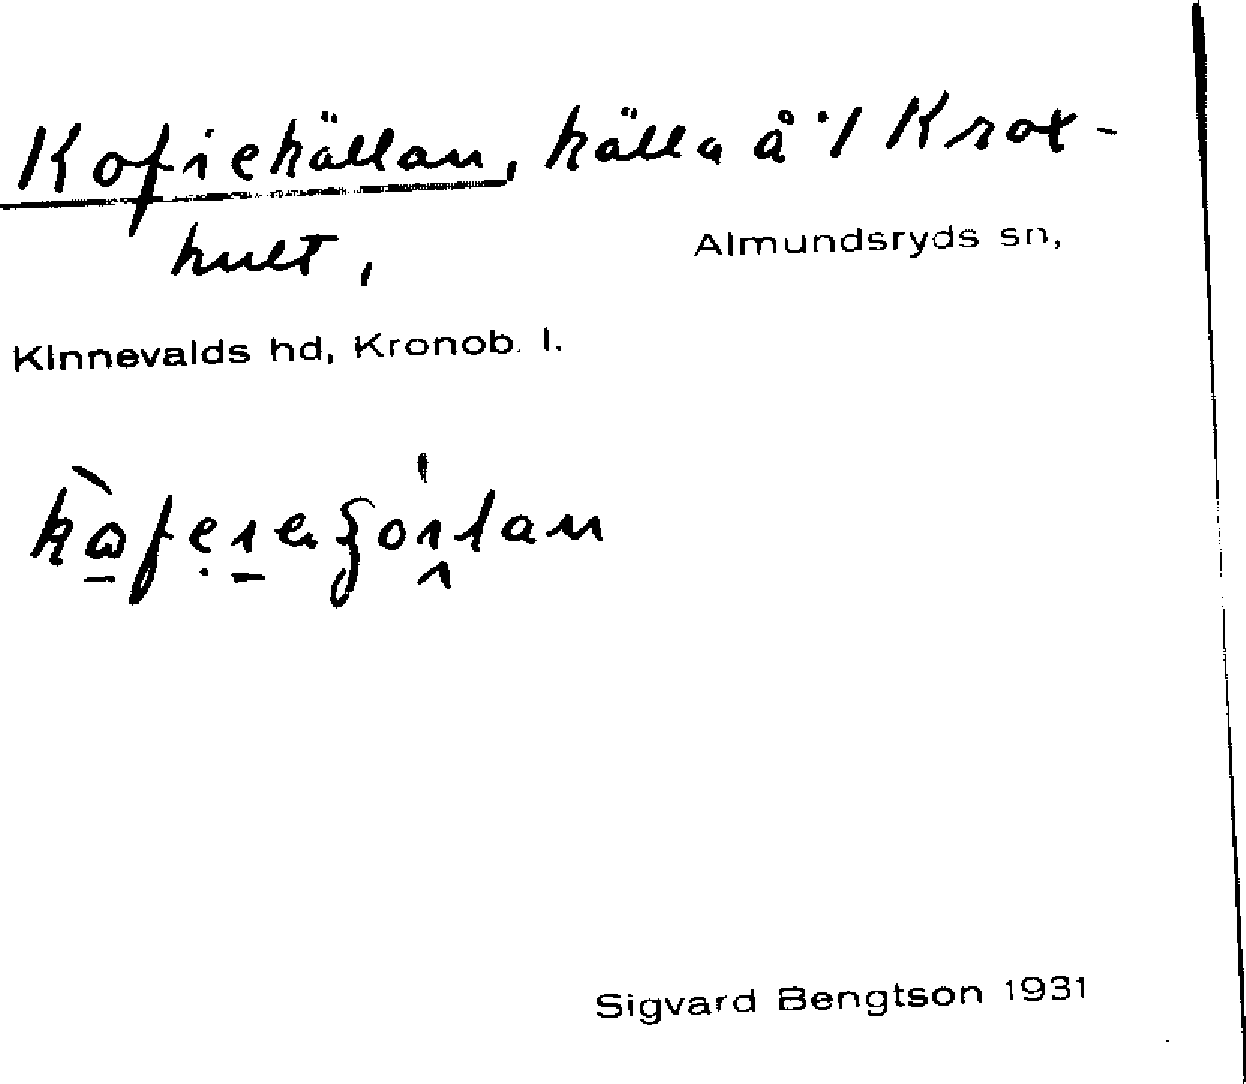 Kofrekällan, källa å ·/ Krox-
hult,
Almundsryds sn,
Kinnevalds hd, Kronob. l.
Sigvard Bengtson 1931